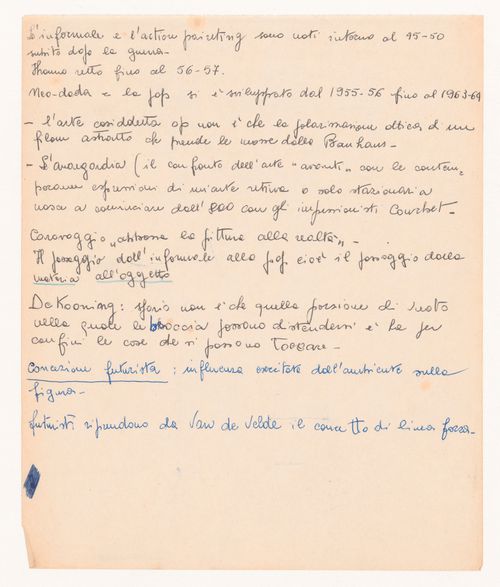 L'informale e l'action painting sono nati intorno al 45-50
subito dopo la guerra -
Hanno retto fino al 56-57.
Neo-dada e la pop si è sviluppato dal 1955-56 fino al 1963-64
- l'arte cosiddetta op non è che la polarizzazione ottica di un
filone astratto che prende le mosse dalla Bauhaus -
- L'avanguardia (il confronto dell'arte "avanti" con le contem,
poranee espressioni di un'arte retriva o solo stazionaria
nasce a cominciare dall'800 con gli impressionisti Courbet -
Caravaggio "abbassa la pittura alla realtà" -
Il passaggio dall'informale alla pop cioè il passaggio dalla
materia all'oggetto
De Kooning: spazio non è che quella porzione di vuoto
nella quale le braccia possono distendersi e ha per
confini le cose che si possono toccare -
Concezione futurista: influenza esercitata dall'ambiente sulla
figura -
futuristi riprendono da Van de Velde il concetto di linea forza -